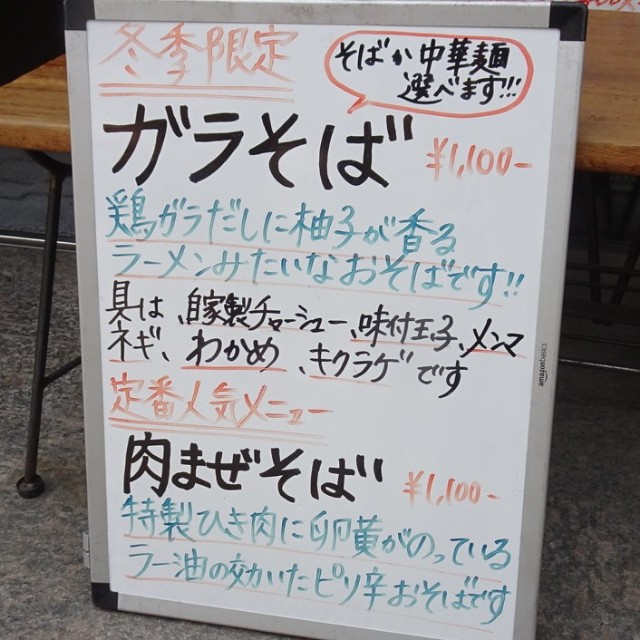 冬季限定
そばか中華麺
選べます!!!
ガラそば ¥1,100-
鶏ガラだしに柚子が香る
ラーメンみたいなおそばです!!
具は、自家製チャーシュー、味付玉子、メンマ
ネギ、わかめ、キクラゲです
定番人気メニュー
肉まぜそば ¥1,100-
特製ひき肉に卵黄がのっている
ラー油の効いたピリ辛おそばです
amazonbasics